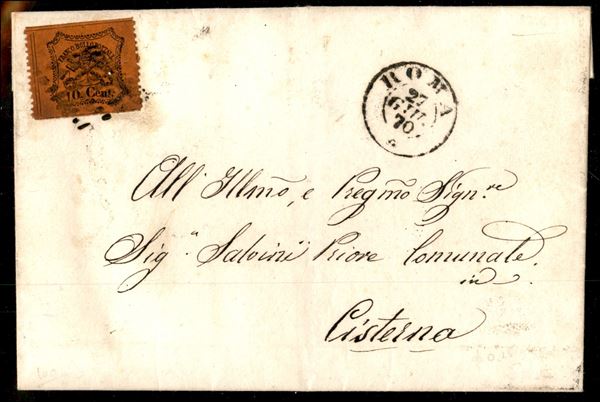 FRANCO BOLLO POSTALE
10 Cent.
ROMA
27
70
All' Illmo, e Pregmo Sign.re
Sig.r Salvini Priore Comunale
in
Cisterna